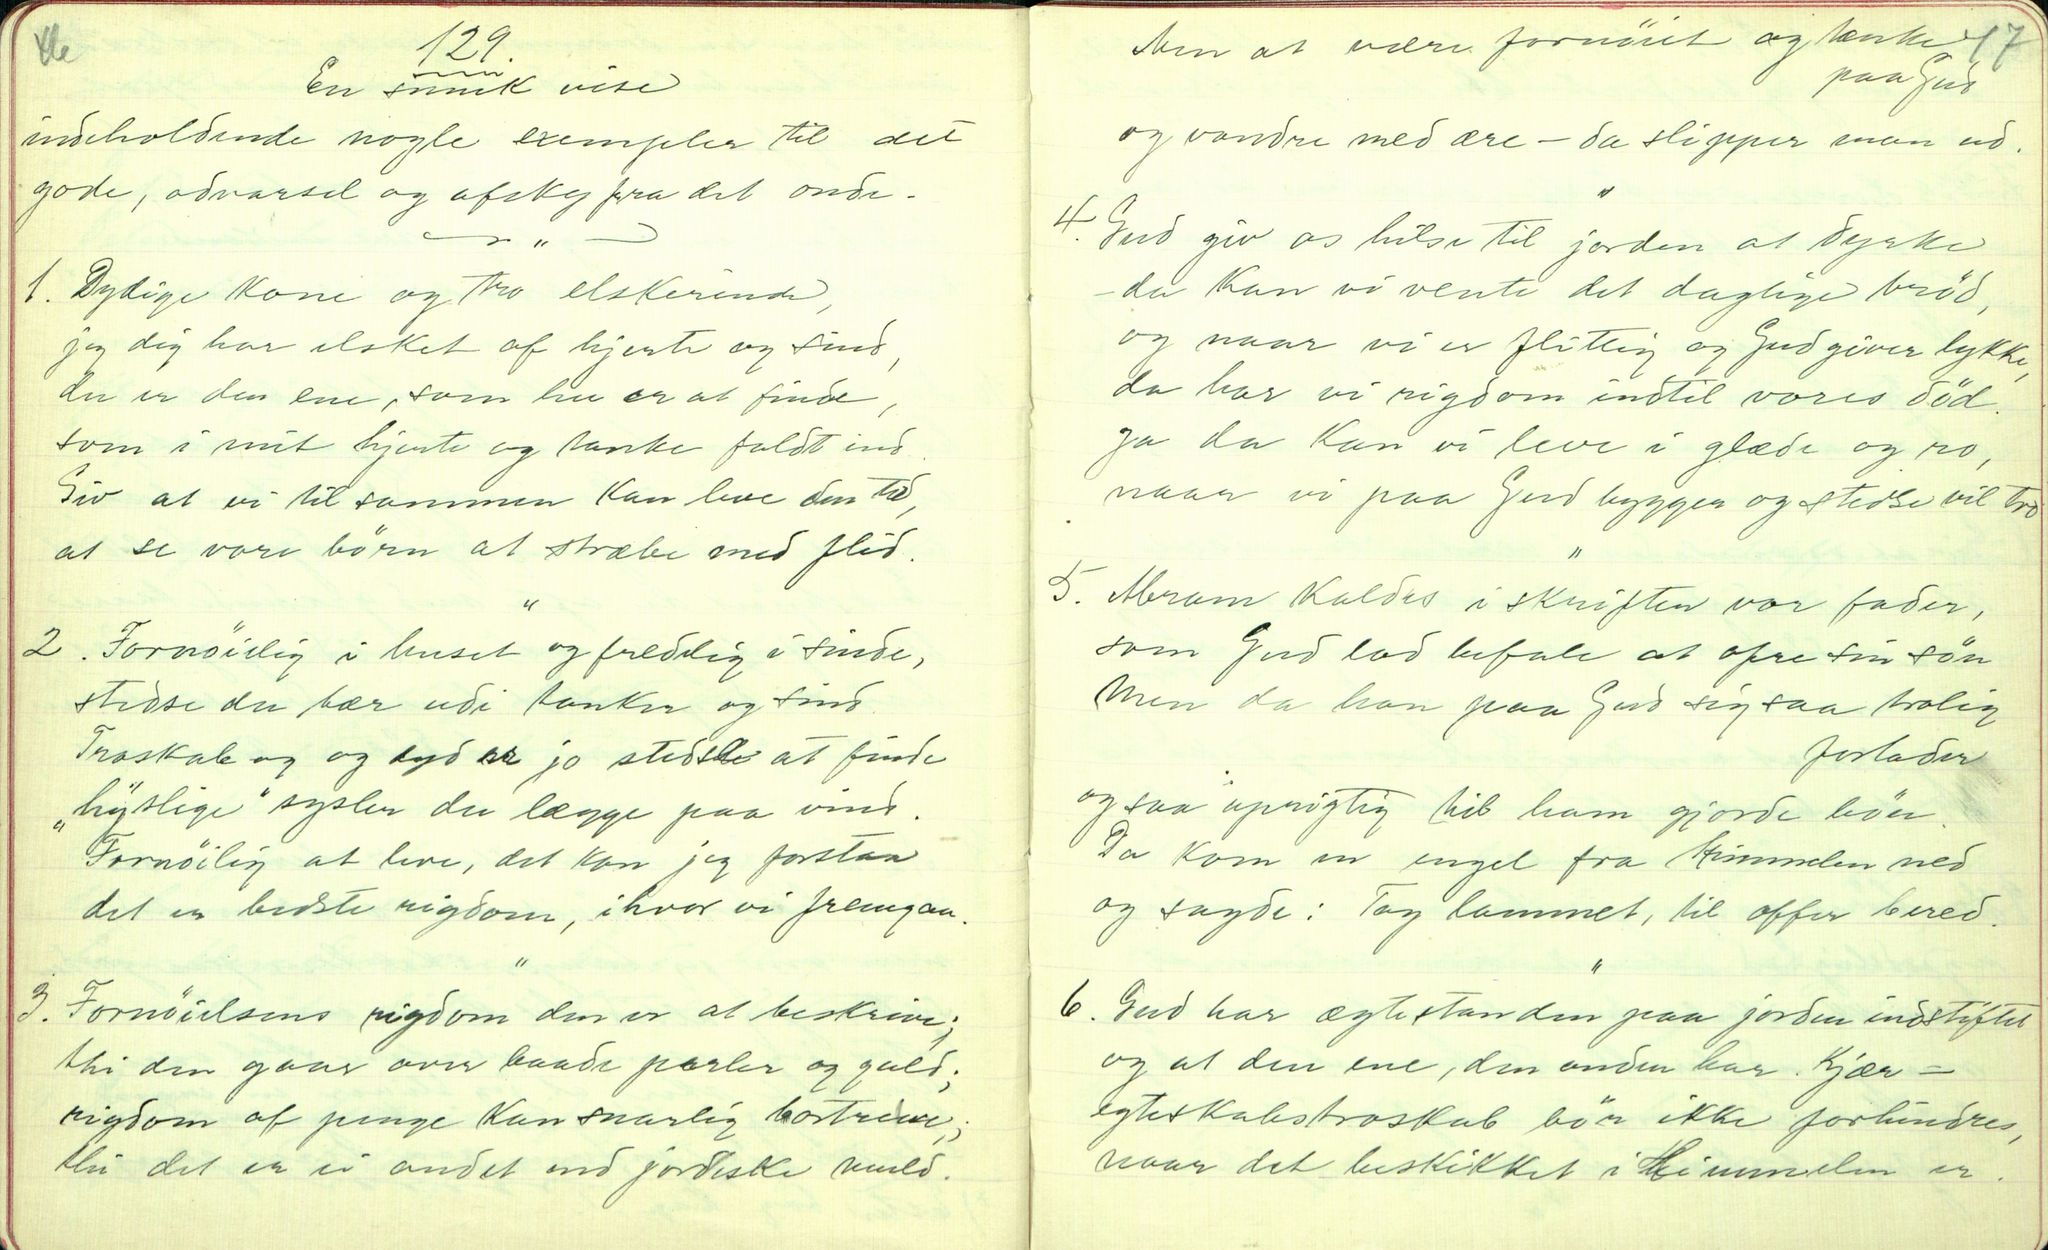 129.
En smuk vise
indeholdende nogle exempler til det
gode, advarsel og afsky fra det onde.
"
1. Dydige kone og tro elskerinde,
jeg dig har elsket af hjerte og sind,
du er den ene, som hu er at finde,
som i mit hjerte og tanke faldt ind.
Giv at vi til sammen kan leve den tid,
at se vore börn at stræbe med flid.
"
2. Fornöielig i huset og fredelig i sinde,
stedse du bær udi tanker og sind.
Troskab og og dyd er jo stedse at finde
"hÿslige" sysler du lægge paa vind.
Fornöilig at leve, det kan jeg forstaa
det er bedste rigdom, i hvor vi fremgaa.
"
3. Fornöielsens rigdom den er at beskrive;
thi den gaar over baade perler og guld;
rigdom af penge kan snarlig bortdrive;
thi det er ei andet end jordiske muld.
17
Men at være fornöiet og tænke
paa Gud
og vandre med ære – da slipper man ud.
"
4. Gud giv os hilse til jorden at dyrke
– da kan vi vente det daglige bröd,
og naar vi er flittig og Gud giver lykke,
da har vi rigdom indtil vores död.
ja da kan vi leve i glæde og ro,
naar vi paa Gud bygger og stedse vil tro
"
5. Abram kaldes i skriften vor fader,
som Gud lod befale at ofre sin sön
Men da han paa Gud sig saa trolig
forlader
og saa oprigtig til ham gjorde bön.
Da kom en engel fra Himmelen ned
og sagde: Tag lammet, til offer bered.
"
6. Gud har ægtestanden paa jorden indstiftet
og at den ene, den anden har kjær –
egteskabstroskab bör ikke forhindres,
naar det beskikket i Himmelen er.